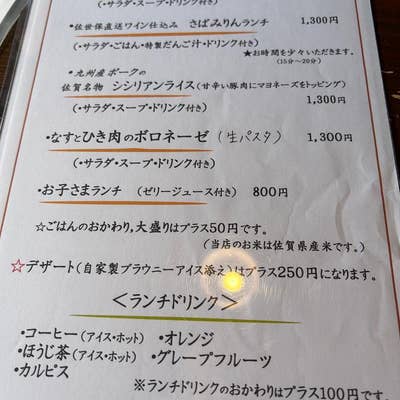 (・サラダ・スープ・ドリンク付き)
・佐世保直送ワイン仕込み さばみりんランチ 1,300円
(・サラダ・ごはん・特製だんご汁・ドリンク付き)
★お時間を少々いただきます。
(15分〜20分)
・九州産ポークの
佐賀名物 シシリアンライス(甘辛い豚肉にマヨネーズをトッピング)
(・サラダ・スープ・ドリンク付き) 1,300円
・なすとひき肉のボロネーゼ(生パスタ) 1,300円
(・サラダ・スープ・ドリンク付き)
・お子さまランチ (ゼリージュース付き) 800円
☆ごはんのおかわり,大盛りはプラス50円です。
(当店のお米は佐賀県産米です。)
☆デザート(自家製ブラウニーアイス添え)はプラス250円になります。
<ランチドリンク>
・コーヒー(アイス・ホット) ・オレンジ
・ほうじ茶(アイス・ホット) ・グレープフルーツ
・カルピス
※ランチドリンクのおかわりはプラス100円です。